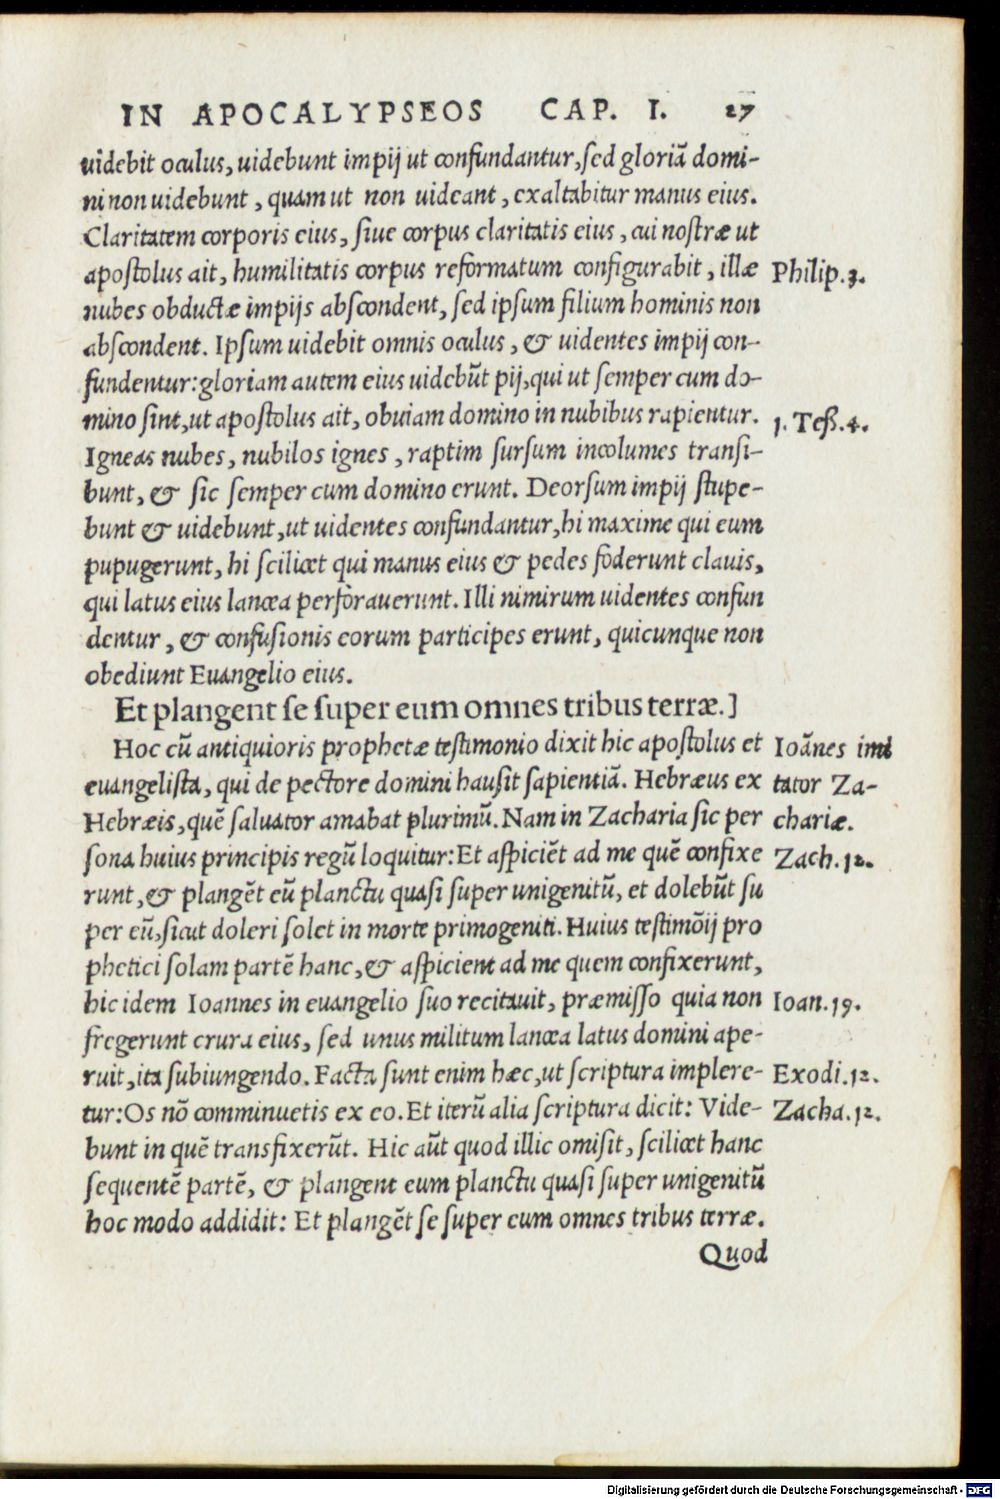 IN APOCALYPSEOS CAP. I. 27
uidebit oculus, uidebunt impij ut confundantur, sed gloriã domi-
ni non uidebunt, quam ut non uideant, exaltabitur manus eius.
Claritatem corporis eius, siue corpus claritatis eius, cui nostræ ut
apostolus ait, humilitatis corpus reformatum configurabit, illæ
Philip.3.
nubes obductæ impijs abscondent, sed ipsum filium hominis non
abscondent. Ipsum uidebit omnis oculus, & uidentes impij con-
fundentur: gloriam autem eius uidebũt pij, qui ut semper cum do-
mino sint, ut apostolus ait, obuiam domino in nubibus rapientur.
1. Teß. 4.
Igneas nubes, nubilos ignes, raptim sursum incolumes transi-
bunt, & sic semper cum domino erunt. Deorsum impij stupe-
bunt & uidebunt, ut uidentes confundantur, hi maxime qui eum
pupugerunt, hi scilicet qui manus eius & pedes foderunt clauis,
qui latus eius lancea perforauerunt. Illi nimirum uidentes confun
dentur, & confusionis eorum participes erunt, quicunque non
obediunt Euangelio eius.
Et plangent se super eum omnes tribus terræ.]
Hoc cũ antiquioris prophetæ testimonio dixit hic apostolus et
Ioãnes imi
euangelista, qui de pectore domini hausit sapientiã. Hebræus ex
tator Za-
Hebræis, quẽ saluator amabat plurimũ. Nam in Zacharia sic per
chariæ.
sona huius principis regũ loquitur: Et aspiciẽt ad me quẽ confixe
Zach.12.
runt, & plangẽt eũ planctu quasi super unigenitũ, et dolebũt su
per eũ, sicut doleri solet in morte primogeniti. Huius testimõij pro
phetici solam partẽ hanc, & aspicient ad me quem confixerunt,
hic idem Ioannes in euangelio suo recitauit, præmisso quia non
Ioan.19.
fregerunt crura eius, sed unus militum lancea latus domini ape-
ruit, ita subiungendo. Facta sunt enim hæc, ut scriptura implere-
Exodi.12.
tur: Os nõ comminuetis ex eo. Et iterũ alia scriptura dicit: Vide-
Zacha.12.
bunt in quẽ transfixerũt. Hic aũt quod illic omisit, scilicet hanc
sequentẽ partẽ, & plangent eum planctu quasi super unigenitũ
hoc modo addidit: Et plangẽt se super eum omnes tribus terræ.
Quod
Digitalisierung gefördert durch die Deutsche Forschungsgemeinschaft - DFG